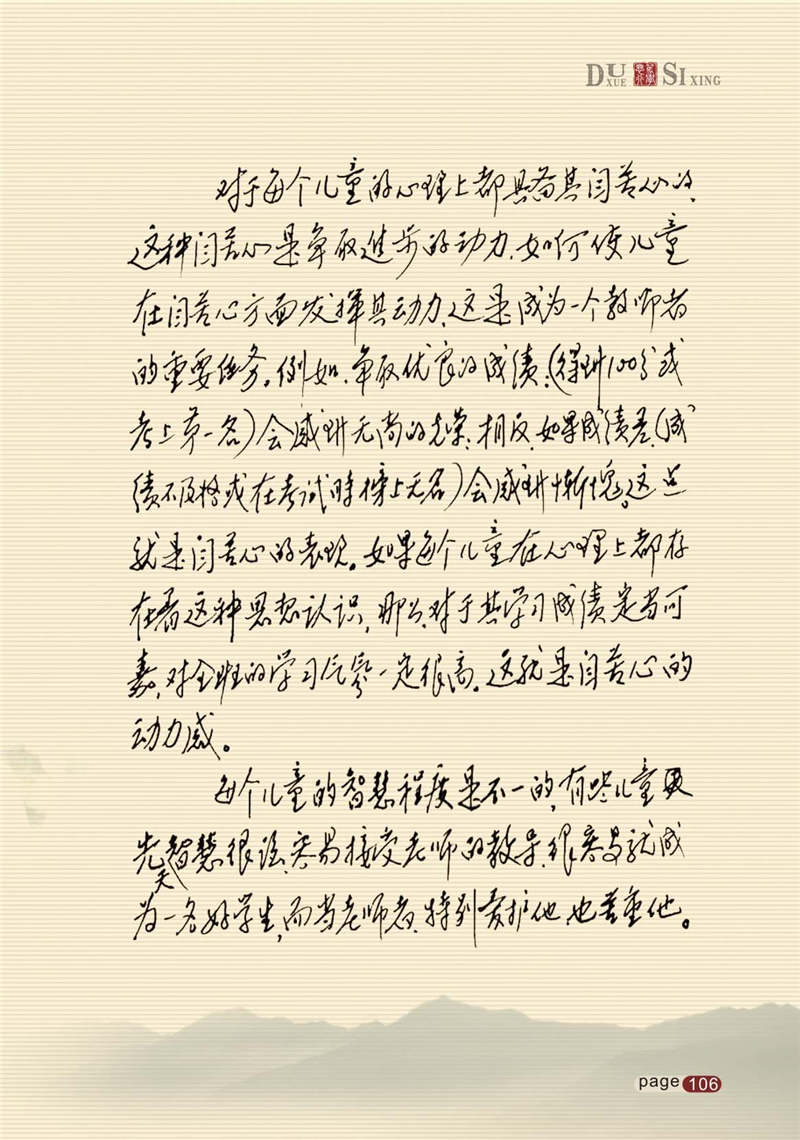 DU XUE SI XING
对于每个儿童的心理上都具备其闫苦心的,
这种闫苦心是争取进步的动力.如何使儿童
在闫苦心方面发挥其动力.这是成为一个教师者
的重要任务。例如.争取优良的成绩.(得到100分或
考上第一名)会感到无尚的光荣.相反.如果成绩差.(成
绩不及格或在考试时榜上无名)会感到惭愧。这点
就是闫苦心的表现。如果每个儿童在心理上都存
在着这种思想认识,那么.对于其学习成绩定当可
嘉,对全班的学习气氛一定很高。这就是闫苦心的
动力感。
每个儿童的智慧程度是不一的,有些儿童
先天智慧很强.容易接受老师的教导.很容易就成
为一名好学生,而当老师者.特别爱护他.也着重他。
page 106